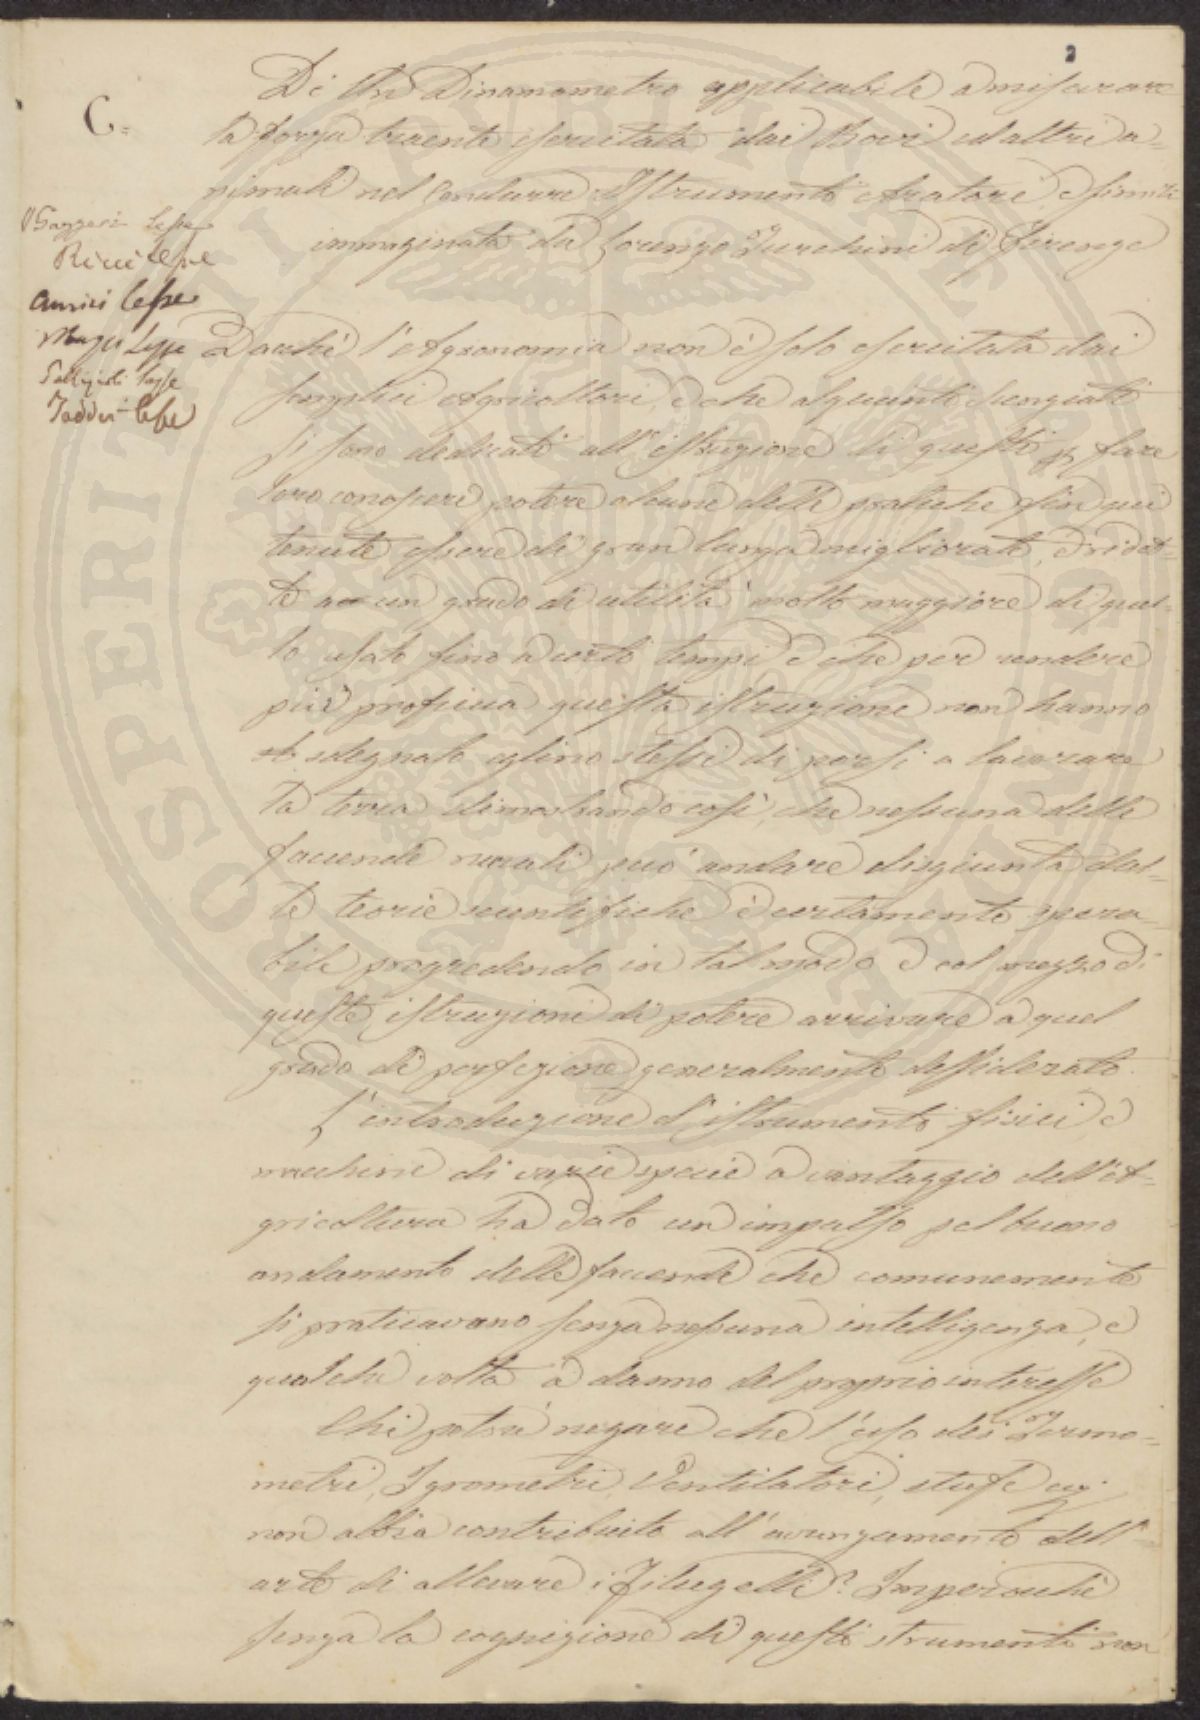 2
C.
Di Un Dinamometro applicabile a misurare
la forza traente esercitata dai Bovi ed altri a-
nimali nel condurre Istrumenti Aratorî, e simili
immaginato da Lorenzo Turchini di Firenze
Gazzeri lesse
Ricci lesse
Amici lesse
Magi Lesse
lesse
Taddei lesse
Dacchè l'Agronomia non è solo esercitata dai
semplici Agricoltori, e che alquanti Scenziati
si sono dedicati all'istruzione di questi p fare
loro conoscere potere alcune delle pratiche fin qui
tenute essere di gran lunga migliorate, e ridot-
te a un grado di utilità molto maggiore di quel-
lo usato fino a certi tempi e che per rendere
più proficua questa istruzione non hanno
sdegnato eglino stessi di porsi a lavorare
la terra dimostrando così, che nessuna delle
faccende rurali può andare disgiunta dal-
le teorie scientifiche è certamente spera-
bile progredendo in tal modo e col mezzo di
queste istruzioni di potere arrivare a quel
grado di perfezione generalmente dessiderato.
L'introduzione d'istrumenti fisici, e
macchine di varie specie a vantaggio dell'A-
gricoltura ha dato un impulso pel buono
andamento delle faccende che comunemente
si praticavano senza nessuna intelligenza, e
qualche volta a danno del proprio interesse
Chi potrà negare che l'uso dei Termo-
metri, Igrometri, Ventilatori, stufe
non abbia contribuito all'avanzamento dell'
arte di allevare i Filugelli? Imperocchè
senza la cognizione di questi strumenti non
SOSPERITATI PUBLICAE AUGENDAE